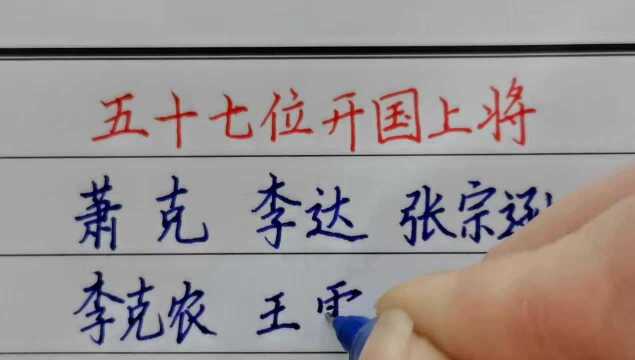 五十七位开国上将
萧克 李达 张宗逊
李克农 王